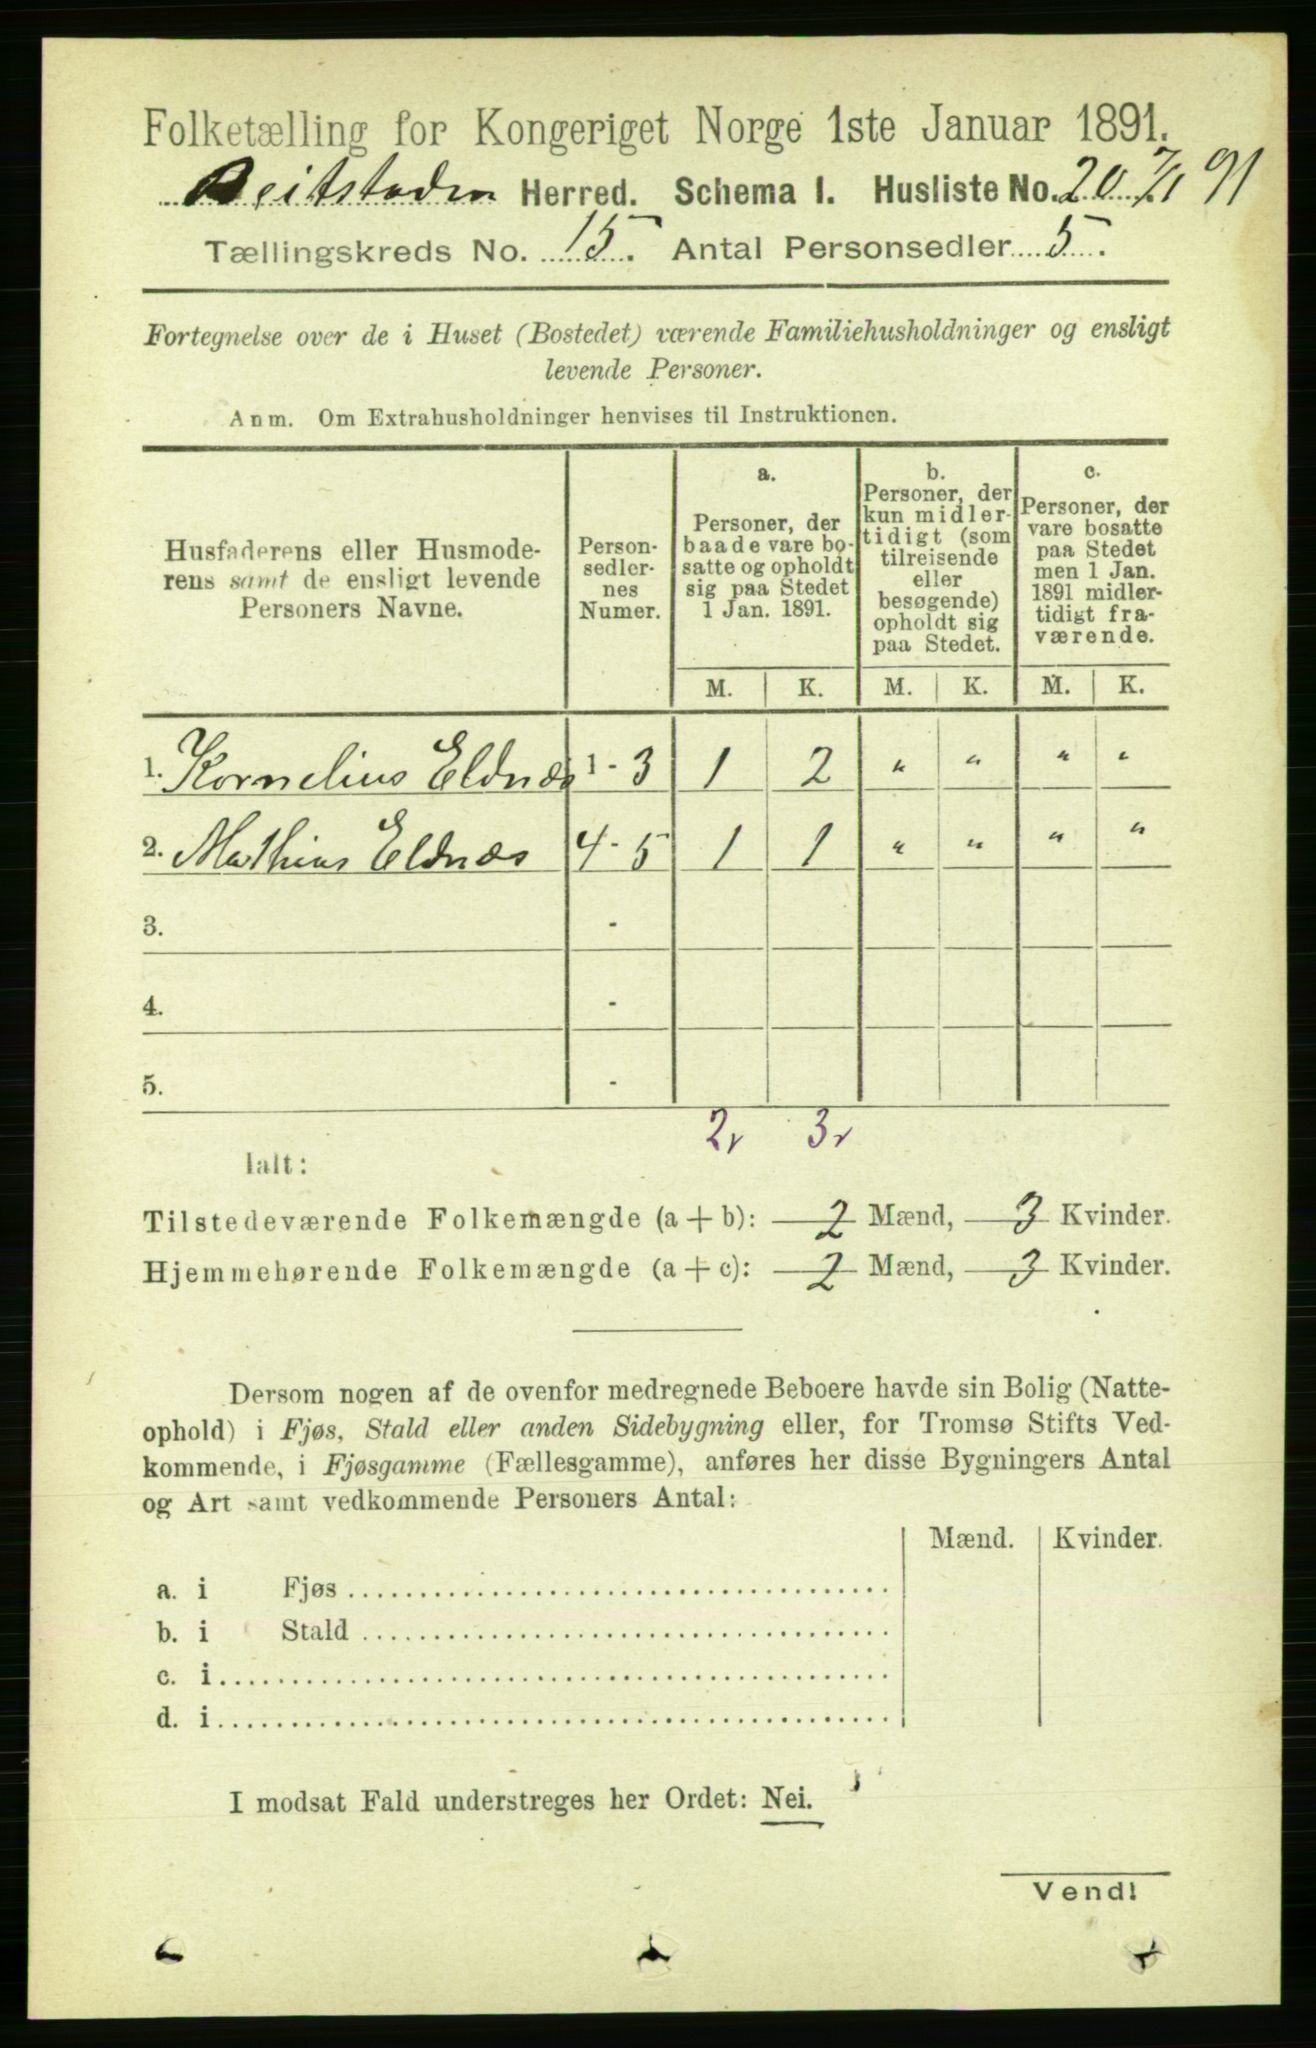 Folketælling for Kongeriget Norge 1ste Januar 1891.
Beitstaden Herred. Schema I. Husliste No. 20. 7/1 91
Tællingskreds No. 15. Antal Personsedler 5.
Fortegnelse over de i Huset (Bostedet) værende Familiehusholdninger og ensligt
levende Personer.
Anm. Om Extrahusholdninger henvises til Instruktionen.
Husfaderens eller Husmode-
rens samt de ensligt levende
Personers Navne.
Person-
sedler-
nes
Numer.
a.
Personer, der
baade vare bo-
satte og opholdt
sig paa Stedet
1 Jan. 1891.
b.
Personer, der
kun midler-
tidigt (som
tilreisende
eller
besøgende)
opholdt sig
paa Stedet.
c.
Personer, der
vare bosatte
paa Stedet
men 1 Jan.
1891 midler-
tidigt fra-
værende.
M. K. M. K. M. K.
1. Kornelius Eldnæs 1 - 3 1 2 " " " "
2. Mathius Eldnæs 4 - 5 1 1 " " " "
3. -
4. -
5. -
2 3
Ialt:
Tilstedeværende Folkemængde (a + b): 2 Mænd, 3 Kvinder.
Hjemmehørende Folkemængde (a + c): 2 Mænd, 3 Kvinder.
Dersom nogen af de ovenfor medregnede Beboere havde sin Bolig (Natte-
ophold) i Fjøs, Stald eller anden Sidebygning eller, for Tromsø Stifts Ved-
kommende, i Fjøsgamme (Fællesgamme), anføres her disse Bygningers Antal
og Art samt vedkommende Personers Antal:
Mænd. Kvinder.
a. i Fjøs
b. i Stald
c. i
d. i
I modsat Fald understreges her Ordet: Nei.
Vend!